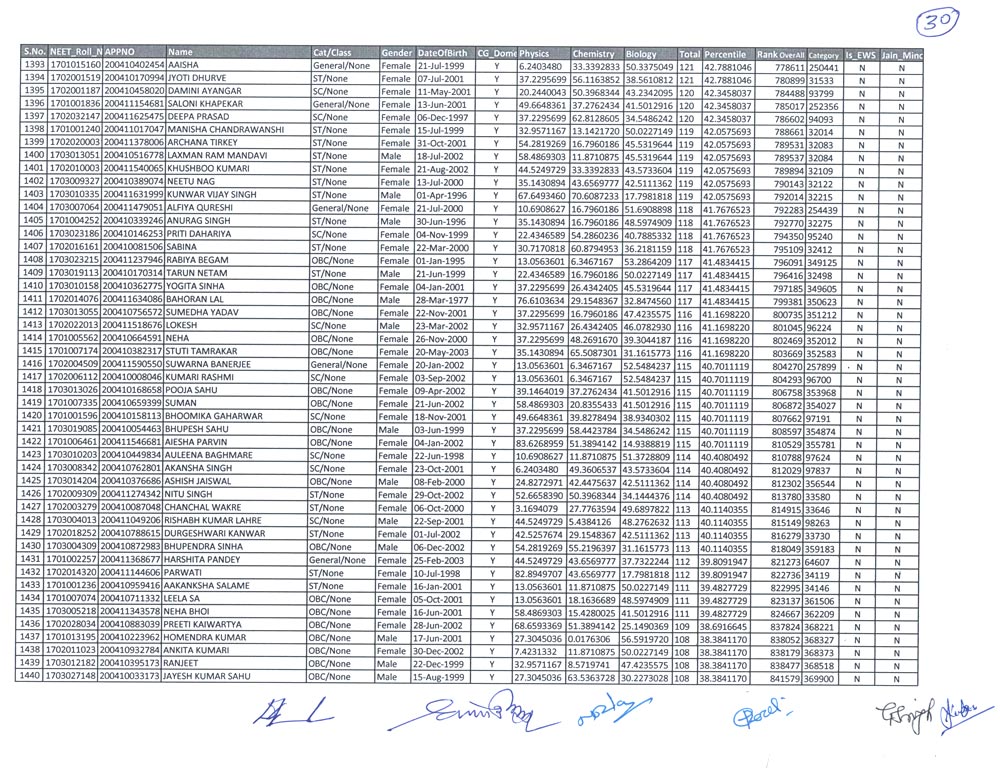 30
S.No. NEET_Roll_N APPNO Name Cat/Class Gender DateOfBirth CG_Dome Physics Chemistry Biology Total Percentile Rank OverAll Category Is_EWS Jain_Minc
1393 1701015160 200410402454 AAISHA General/None Female 21-Jul-1999 Y 6.2403480 33.3392833 50.3375049 121 42.7881046 778611 250441 N N
1394 1702001519 200410170994 JYOTI DHURVE ST/None Female 07-Jul-2001 Y 37.2295699 56.1163852 38.5610812 121 42.7881046 780899 31533 N N
1395 1702001187 200410458020 DAMINI AYANGAR SC/None Female 11-May-2001 Y 20.2440043 50.3968344 43.2342095 120 42.3458037 784488 93799 N N
1396 1701001836 200411154681 SALONI KHAPEKAR General/None Female 13-Jun-2001 Y 49.6648361 37.2762434 41.5012916 120 42.3458037 785017 252356 N N
1397 1702032147 200411625475 DEEPA PRASAD SC/None Female 06-Dec-1997 Y 37.2295699 62.8128605 34.5486242 120 42.3458037 786602 94093 N N
1398 1701001240 200411017047 MANISHA CHANDRAWANSHI ST/None Female 15-Jul-1999 Y 32.9571167 13.1421720 50.0227149 119 42.0575693 788661 32014 N N
1399 1702020003 200411378006 ARCHANA TIRKEY ST/None Female 31-Oct-2001 Y 54.2819269 16.7960186 45.5319644 119 42.0575693 789531 32083 N N
1400 1703013051 200410516778 LAXMAN RAM MANDAVI ST/None Male 18-Jul-2002 Y 58.4869303 11.8710875 45.5319644 119 42.0575693 789537 32084 N N
1401 1702010003 200411540065 KHUSHBOO KUMARI ST/None Female 21-Aug-2002 Y 44.5249729 33.3392833 43.5733604 119 42.0575693 789894 32109 N N
1402 1703009327 200410389074 NEETU NAG ST/None Female 13-Jul-2000 Y 35.1430894 43.6569777 42.5111362 119 42.0575693 790143 32122 N N
1403 1703010335 200411631999 KUNWAR VIJAY SINGH ST/None Male 01-Apr-1996 Y 67.6493460 70.6087233 17.7981818 119 42.0575693 792014 32215 N N
1404 1703007064 200411479051 ALFIYA QURESHI General/None Female 21-Jul-2000 Y 10.6908627 16.7960186 51.6908898 118 41.7676523 792283 254439 N N
1405 1701004252 200410339246 ANURAG SINGH ST/None Male 30-Jun-1996 Y 35.1430894 16.7960186 48.5974909 118 41.7676523 792770 32275 N N
1406 1703023186 200410146253 PRITI DAHARIYA SC/None Female 04-Nov-1999 Y 22.4346589 54.2860236 40.7885332 118 41.7676523 794350 95240 N N
1407 1702016161 200410081506 SABINA ST/None Female 22-Mar-2000 Y 30.7170818 60.8794953 36.2181159 118 41.7676523 795109 32412 N N
1408 1703023215 200411237946 RABIYA BEGAM OBC/None Female 01-Jan-1995 Y 13.0563601 6.3467167 53.2864209 117 41.4834415 796091 349125 N N
1409 1703019113 200410170314 TARUN NETAM ST/None Male 21-Jun-1999 Y 22.4346589 16.7960186 50.0227149 117 41.4834415 796416 32498 N N
1410 1703010158 200410362775 YOGITA SINHA OBC/None Female 04-Jan-2001 Y 37.2295699 26.4342405 45.5319644 117 41.4834415 797185 349605 N N
1411 1702014076 200411634086 BAHORAN LAL OBC/None Male 28-Mar-1977 Y 76.6103634 29.1548367 32.8474560 117 41.4834415 799381 350623 N N
1412 1703013055 200410756572 SUMEDHA YADAV OBC/None Female 22-Nov-2001 Y 37.2295699 16.7960186 47.4235575 116 41.1698220 800735 351212 N N
1413 1702022013 200411518676 LOKESH SC/None Male 23-Mar-2002 Y 32.9571167 26.4342405 46.0782930 116 41.1698220 801045 96224 N N
1414 1701005562 200410664591 NEHA OBC/None Female 26-Nov-2000 Y 37.2295699 48.2691670 39.3044187 116 41.1698220 802469 352012 N N
1415 1701007174 200410382317 STUTI TAMRAKAR OBC/None Female 20-May-2003 Y 35.1430894 65.5087301 31.1615773 116 41.1698220 803669 352583 N N
1416 1702004509 200411590550 SUWARNA BANERJEE General/None Female 20-Jan-2002 Y 13.0563601 6.3467167 52.5484237 115 40.7011119 804270 257899 N N
1417 1702006112 200410008046 KUMARI RASHMI SC/None Female 03-Sep-2002 Y 13.0563601 6.3467167 52.5484237 115 40.7011119 804293 96700 N N
1418 1703013026 200410168658 POOJA SAHU OBC/None Female 09-Apr-2002 Y 39.1464019 37.2762434 41.5012916 115 40.7011119 806758 353968 N N
1419 1701007335 200410659399 SUMAN OBC/None Female 21-Jun-2002 Y 58.4869303 20.8355433 41.5012916 115 40.7011119 806872 354027 N N
1420 1701001596 200410158113 BHOOMIKA GAHARWAR SC/None Female 18-Nov-2001 Y 49.6648361 39.8278494 38.9340302 115 40.7011119 807662 97191 N N
1421 1703019085 200410054463 BHUPESH SAHU OBC/None Male 03-Jun-1999 Y 37.2295699 58.4423784 34.5486242 115 40.7011119 808597 354874 N N
1422 1701006461 200411546681 AIESHA PARVIN OBC/None Female 04-Jan-2002 Y 83.6268959 51.3894142 14.9388819 115 40.7011119 810529 355781 N N
1423 1701010203 200410449834 AULEENA BAGHMARE SC/None Female 22-Jun-1998 Y 10.6908627 11.8710875 51.3728809 114 40.4080492 810788 97624 N N
1424 1703008342 200410762801 AKANSHA SINGH SC/None Female 23-Oct-2001 Y 6.2403480 49.3606537 43.5733604 114 40.4080492 812029 97837 N N
1425 1703014204 200410376686 ASHISH JAISWAL OBC/None Male 08-Feb-2000 Y 24.8272971 42.4475637 42.5111362 114 40.4080492 812302 356544 N N
1426 1702009309 200411274342 NITU SINGH ST/None Female 29-Oct-2002 Y 52.6658390 50.3968344 34.1444376 114 40.4080492 813780 33580 N N
1427 1702003279 200410087048 CHANCHAL WAKRE ST/None Female 06-Oct-2000 Y 3.1694079 27.7763594 49.6897822 113 40.1140355 814915 33646 N N
1428 1703004013 200411049206 RISHABH KUMAR LAHRE SC/None Male 22-Sep-2001 Y 44.5249729 5.4384126 48.2762632 113 40.1140355 815149 98263 N N
1429 1702018252 200410788615 DURGESHWARI KANWAR ST/None Female 01-Jul-2002 Y 42.5257674 29.1548367 42.5111362 113 40.1140355 816279 33730 N N
1430 1703004309 200410872983 BHUPENDRA SINHA OBC/None Male 06-Dec-2002 Y 54.2819269 55.2196397 31.1615773 113 40.1140355 818049 359183 N N
1431 1701002257 200411368677 HARSHITA PANDEY General/None Female 25-Feb-2003 Y 44.5249729 43.6569777 37.7322244 112 39.8091947 821273 64607 N N
1432 1702014320 200411144606 PARWATI ST/None Female 10-Jul-1998 Y 82.8949707 43.6569777 17.7981818 112 39.8091947 822736 34119 N N
1433 1701001236 200410959416 AAKANKSHA SALAME ST/None Female 16-Jan-2001 Y 13.0563601 11.8710875 50.0227149 111 39.4827729 822995 34146 N N
1434 1701007074 200410711332 LEELA SA OBC/None Female 05-Oct-2001 Y 13.0563601 18.1636689 48.5974909 111 39.4827729 823137 361506 N N
1435 1703005218 200411343578 NEHA BHOI OBC/None Female 16-Jun-2001 Y 58.4869303 15.4280025 41.5012916 111 39.4827729 824667 362209 N N
1436 1702028034 200410883039 PREETI KAIWARTYA OBC/None Female 28-Jun-2002 Y 68.6593369 51.3894142 25.1490369 109 38.6916645 837824 368221 N N
1437 1701013195 200410223962 HOMENDRA KUMAR OBC/None Male 17-Jun-2001 Y 27.3045036 0.0176306 56.5919720 108 38.3841170 838052 368327 N N
1438 1702011023 200410932784 ANKITA KUMARI OBC/None Female 30-Dec-2002 Y 7.4231332 11.8710875 50.0227149 108 38.3841170 838179 368373 N N
1439 1703012182 200410395173 RANJEET OBC/None Male 22-Dec-1999 Y 32.9571167 8.5719741 47.4235575 108 38.3841170 838477 368518 N N
1440 1703027148 200410033173 JAYESH KUMAR SAHU OBC/None Male 15-Aug-1999 Y 27.3045036 63.5363728 30.2273028 108 38.3841170 841579 369900 N N